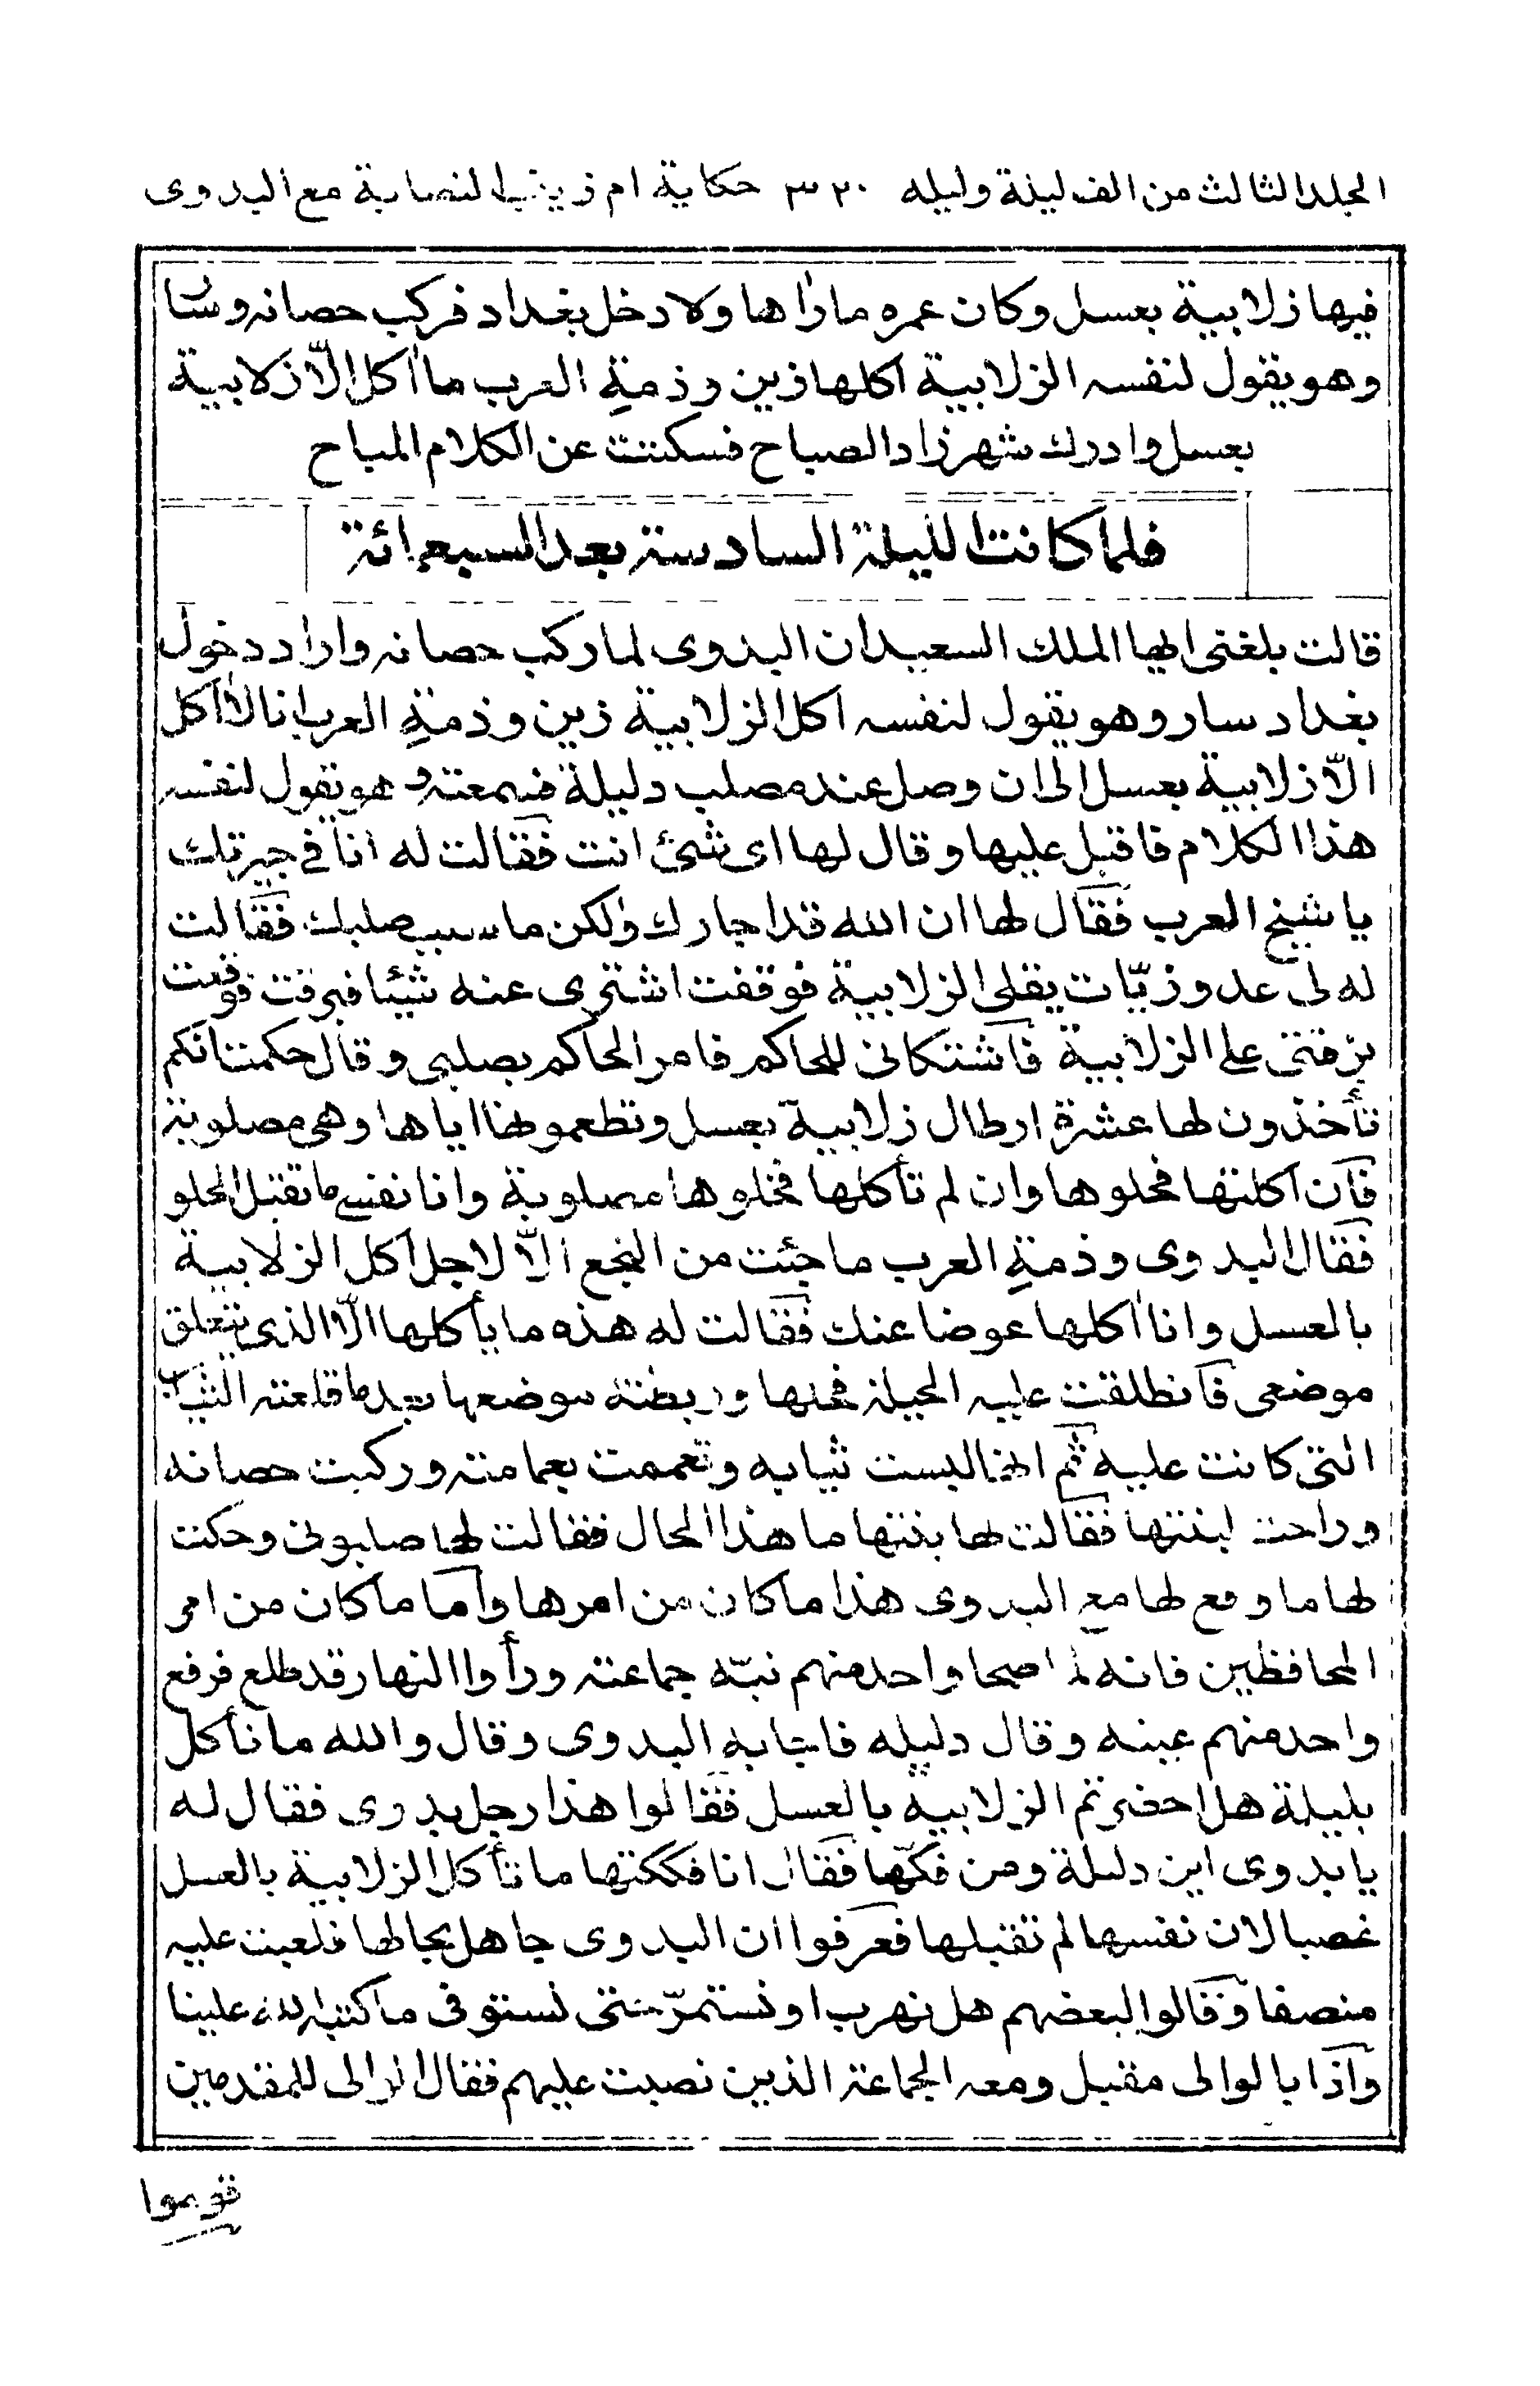 المجلد الثالث من الف ليلة وليله ٣٣٠ حكاية ام زينب النصابة مع البدوى
فيها زلابية بعسل وكان عمره مارٰاها ولا دخل بغداد فركب حصانه وسار
وهو يقول لنفسه الزلابية اكلها زين وذمةِ العرب ما اٰكل الّا زلابية
بعسل وادرك شهرزاد الصباح فسكتت عن الكلام المباح
فلما كانت الليلة السادسة بعد السبعمائة
قالت بلغنى ايها الملك السعيد ان البدوى لما ركب حصانه واراد دخول
بغداد سار وهو يقول لنفسه اكل الزلابية زين وذمةِ العرب انا لا اٰكل
الّا زلابية بعسل الى ان وصل عند مصلب دليلة فسمعته وهو يقول لنفسه
هذا الكلام فاقبل عليها وقال لها اى شئ انت فقالت له انا فى جيرتك
يا شيخ العرب فقال لها ان الله قد اجارك ولكن ما سبب صلبك فقالت
له لى عدو زيّات يقلى الزلابية فوقفت اشترى عنه شيئا فبزقت فوقعت
بزقتى على الزلابية فاشتكانى للحاكم فامر الحاكم بصلبى وقال حكمت انكم
تأخذون لها عشرة ارطال زلابية بعسل وتطعمونها اياها وهى مصلوبة
فان اكلتها فحلوها وان لم تأكلها فخلوها مصلوبة وانا نفسى ما تقبل الحلو
فقال البدوى وذمةِ العرب ما جئت من النجع الّا لاجل اكل الزلابية
بالعسل وانا اٰكلها عوضا عنك فقالت له هذه ما يأكلها الّا الذى يتعلق
موضعى فانطلقت عليه الحيلة فحلها وربطته موضعها بعد ما قلعته الثياب
التى كانت عليه ثم انها لبست ثيابه وتعممت بعمامته وركبت حصانه
وراحت لبنتها فقالت لها بنتها ما هذا الحال فقالت لها صلبونى وحكت
لها ما وقع لها مع البدوى هذا ما كان من امرها واما ما كان من امر
المحافظين فانه لما صحا واحد منهم نبّه جماعته ورأوا النهار قد طلع فرفع
واحد منهم عينه وقال دليله فاجابه البدوى وقال والله ما نأكل
بليلة هل احضرتم الزلابية بالعسل فقالوا هذا رجل بدوى فقال له
يا بدوى اين دليلة ومن فكّها فقال انا فككتها ما تأكل الزلابية بالعسل
غصبا لان نفسها لم تقبلها فعرفوا ان البدوى جاهل بحالها فلعبت عليه
منصفا وقالوا لبعضهم هل نهرب او نستمرّ حتى نستوفى ما كتبه الله علينا
واذا بالوالى مقبل ومعه الجماعة الذين نصبت عليهم فقال الوالى للمقدمين
قوموا